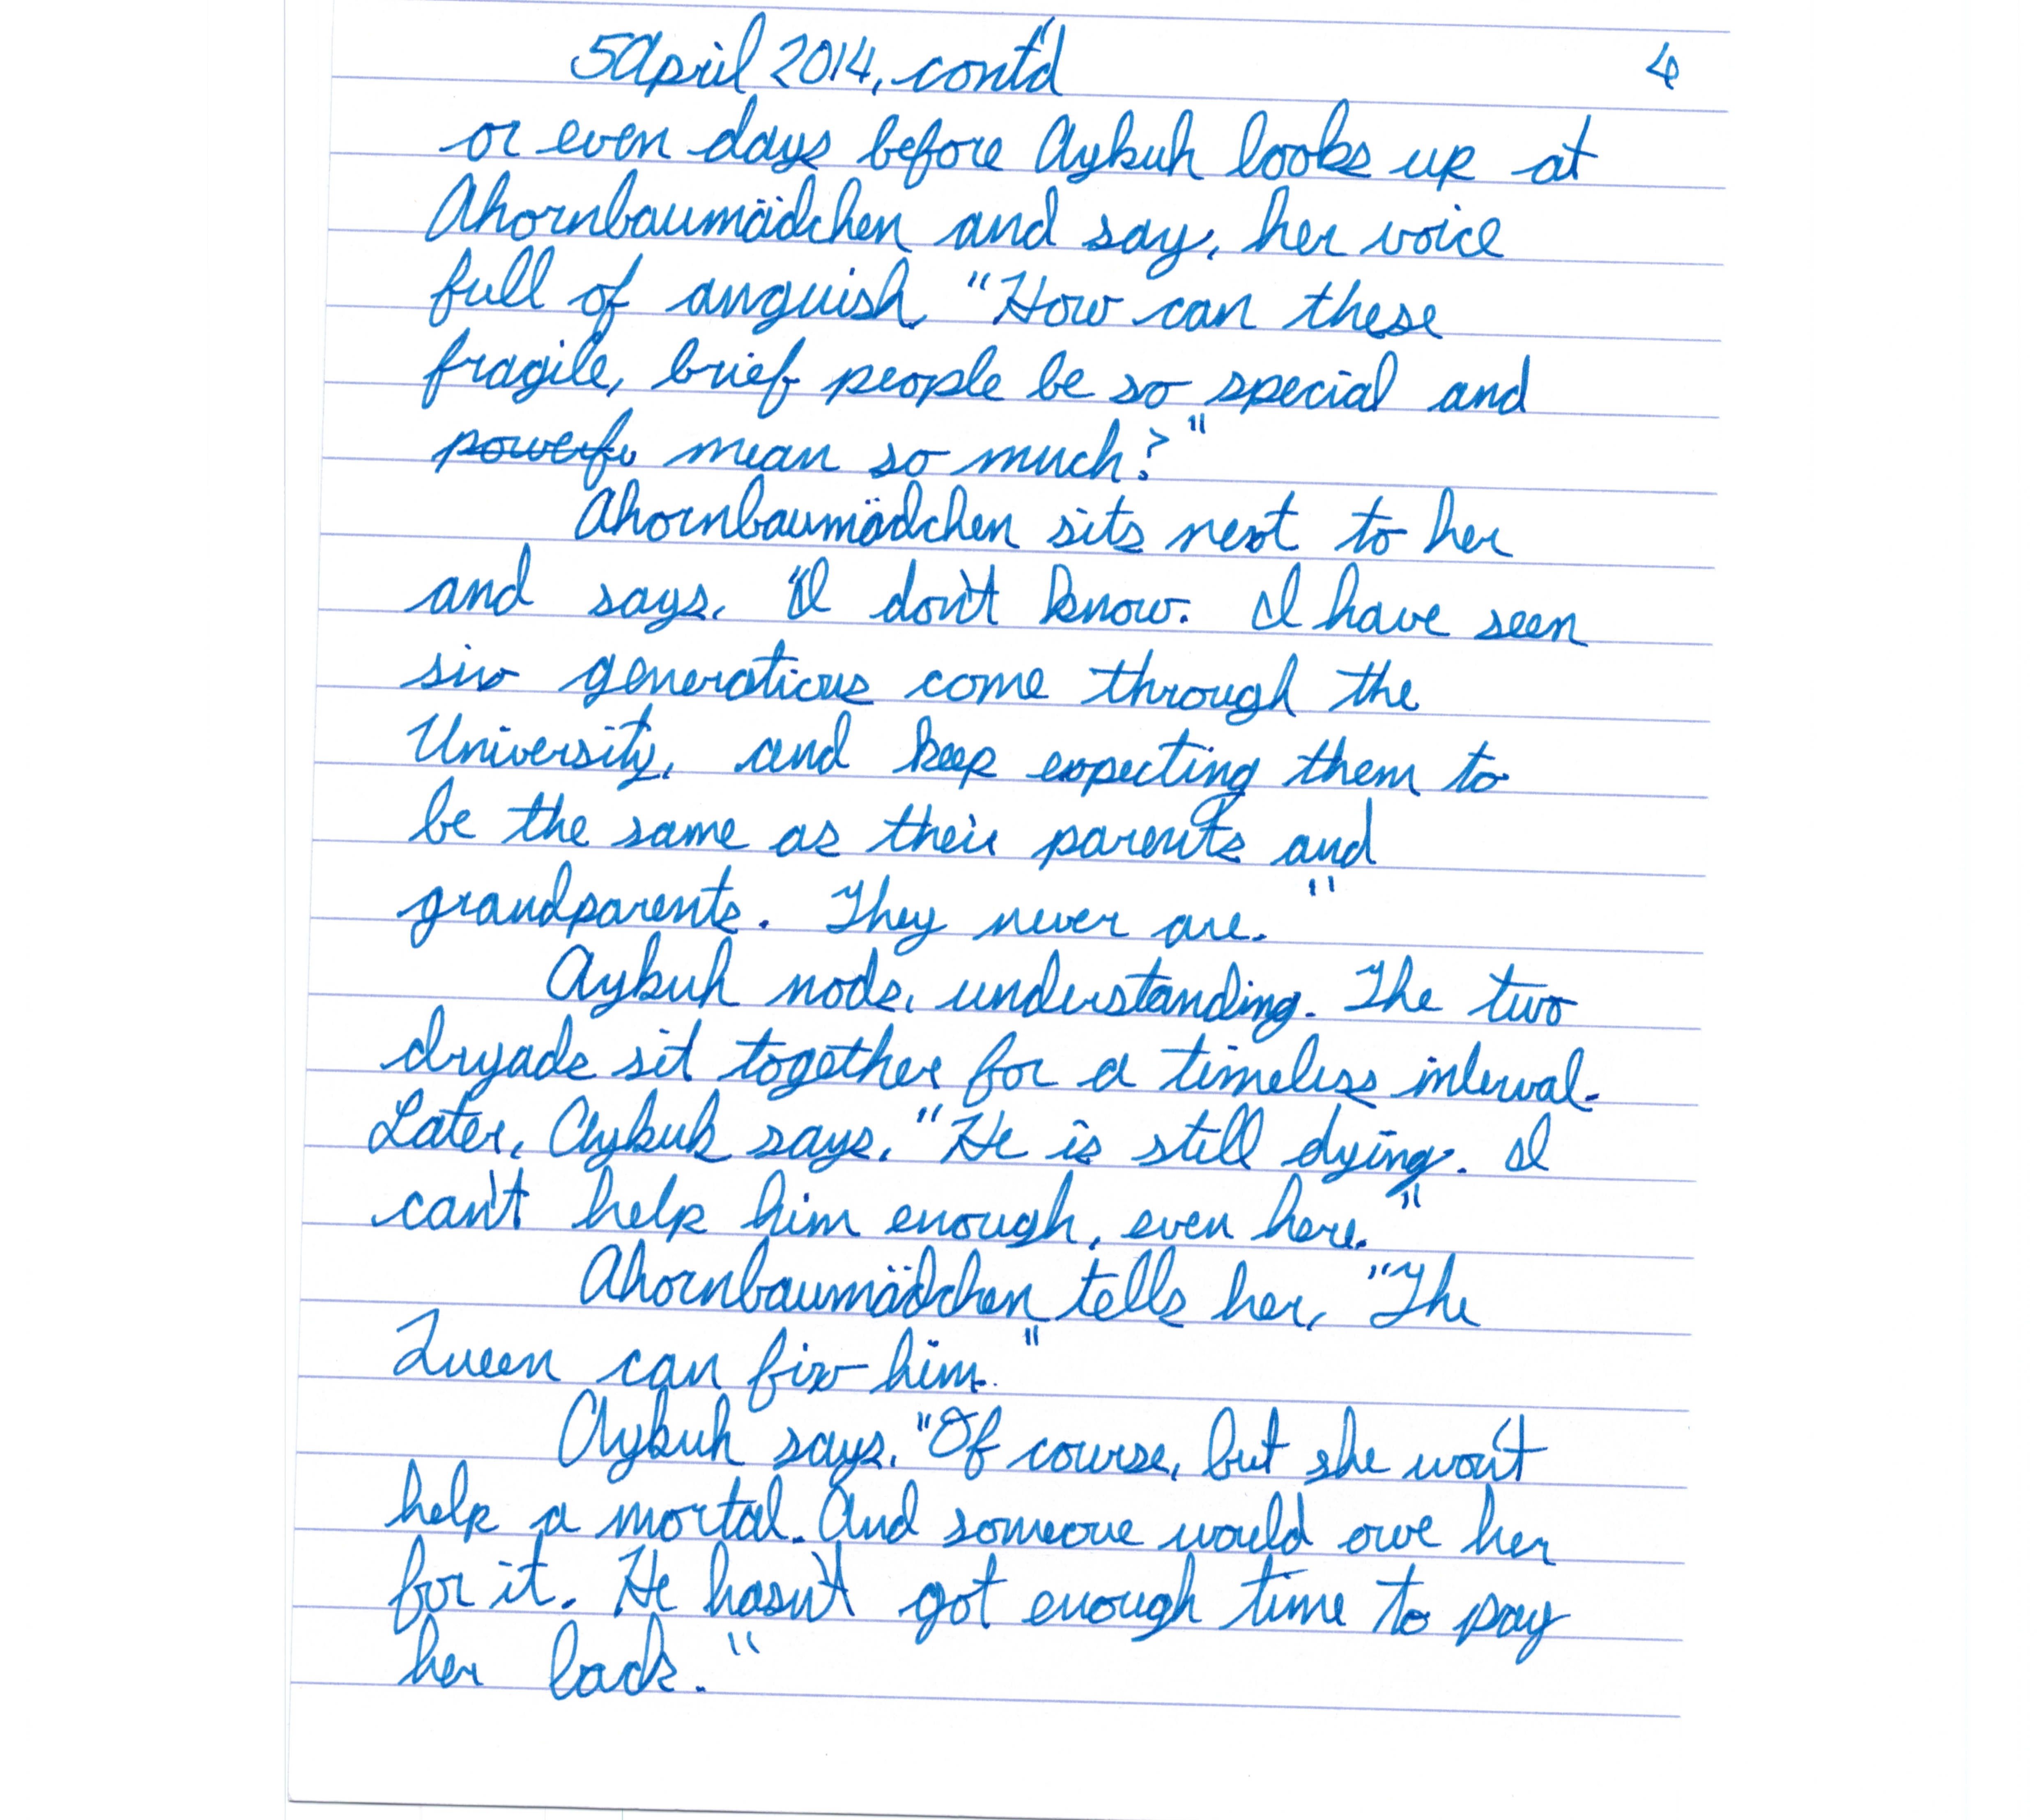 5 April 2014, cont'd 4
or even days before Aykuh looks up at
Ahornbaumädchen and say, her voice
full of anguish, "How can these
fragile, brief people be so special and
powerfu mean so much?"
Ahornbaumädchen sits next to her
and says, "I don't know. I have seen
six generations come through the
University, and keep expecting them to
be the same as their parents and
grandparents. They never are."
Aykuh nods, understanding. The two
dryads sit together for a timeless interval.
Later, Aykuh says, "He is still dying. I
can't help him enough, even here."
Ahornbaumädchen tells her, "The
Queen can fix him."
Aykuh says, "Of course, but she won't
help a mortal. And someone would owe her
for it. He hasn't got enough time to pay
her back."